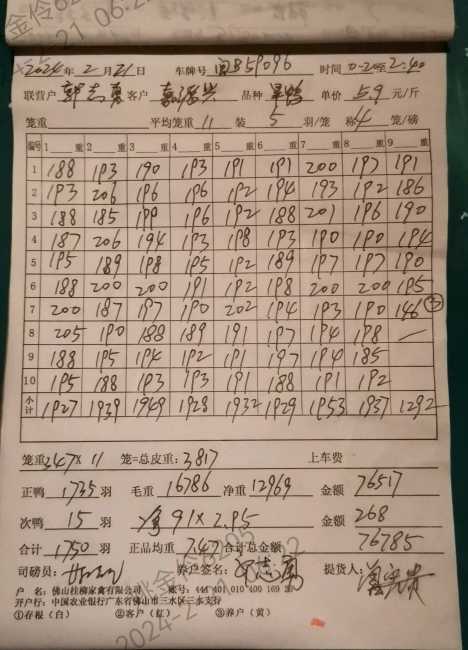 2024年 2 月 21 日 车牌号 闽B59096 时间 0-20至2:40
联营户 郭志勇 客户 品种 单价 5.9 元/斤
笼重 平均笼重 11 装 5 羽/笼 称 4 笼/磅
编号 1 重 2 重 3 重 4 重 5 重 6 重 7 重 8 重 9 重
1 188 193 190 193 191 191 200 197 191
2 193 206 196 196 192 194 193 192 186
3 188 185 190 196 192 188 201 196 190
4 187 206 194 193 198 193 190 190 194
5 195 189 198 195 192 189 197 197 190
6 188 200 200 191 192 198 200 200 195
7 200 187 197 190 202 194 193 190 146 ③
8 205 190 188 189 191 197 194 198 —
9 188 195 194 192 191 197 194 185
10 195 188 193 193 191 188 191 192
小计 1927 1939 1949 1928 1932 1929 1953 1937 1292
笼重 347×11 笼=总皮重: 3817 上车费
正鸭 1735 羽 毛重 16786 净重 12969 金额 76517
次鸭 15 羽 91×2.95 金额 268
合计 1750 羽 正品均重 7.47 合计总金额 76785
司磅员: 养户签名: 郭志勇 提货人:
户 名: 佛山桂柳家禽有限公司 账号: 444 401 010 400 169 26
开户行: 中国农业银行广东省佛山市三水区三水支行
①存根(白) ②客户(红) ③养户(黄)